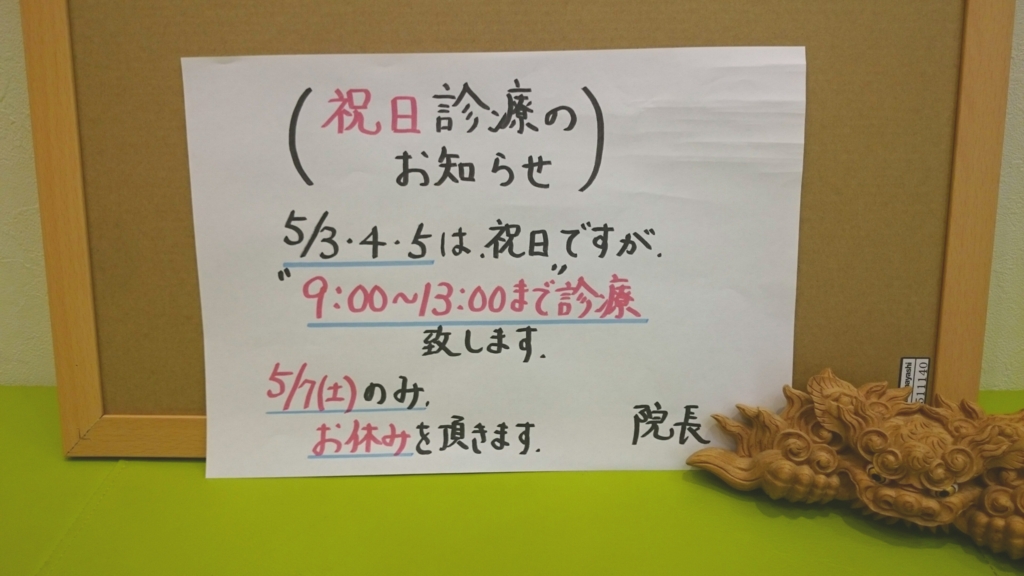 (祝日診療の
お知らせ)
5/3・4・5は、祝日ですが、
"9:00~13:00まで"診療
致します.
5/7(土)のみ、
お休みを頂きます.
院長